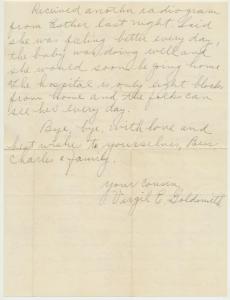 Received another radiogram
from Esther last night. Said
she was feeling better every day,
the baby was doing well and
she would soon be going home
the hospital is only eight blocks
from home and the folks can
see her every day.
Bye, bye, with love and
best wishes to yourselves,
Charles & family.
your cousin
Virgil C. Goldsmith